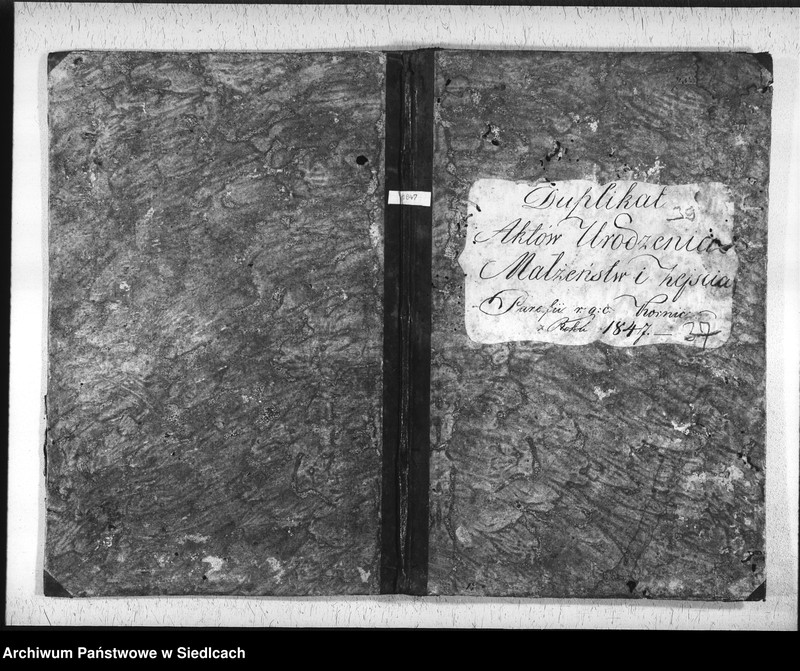 Duplikat
39
Aktów Urodzenia
Małżeństw i Zejścia
Parafii r: g: c. Kornica
z Roku 1847. — 37
1847
Archiwum Państwowe w Siedlcach